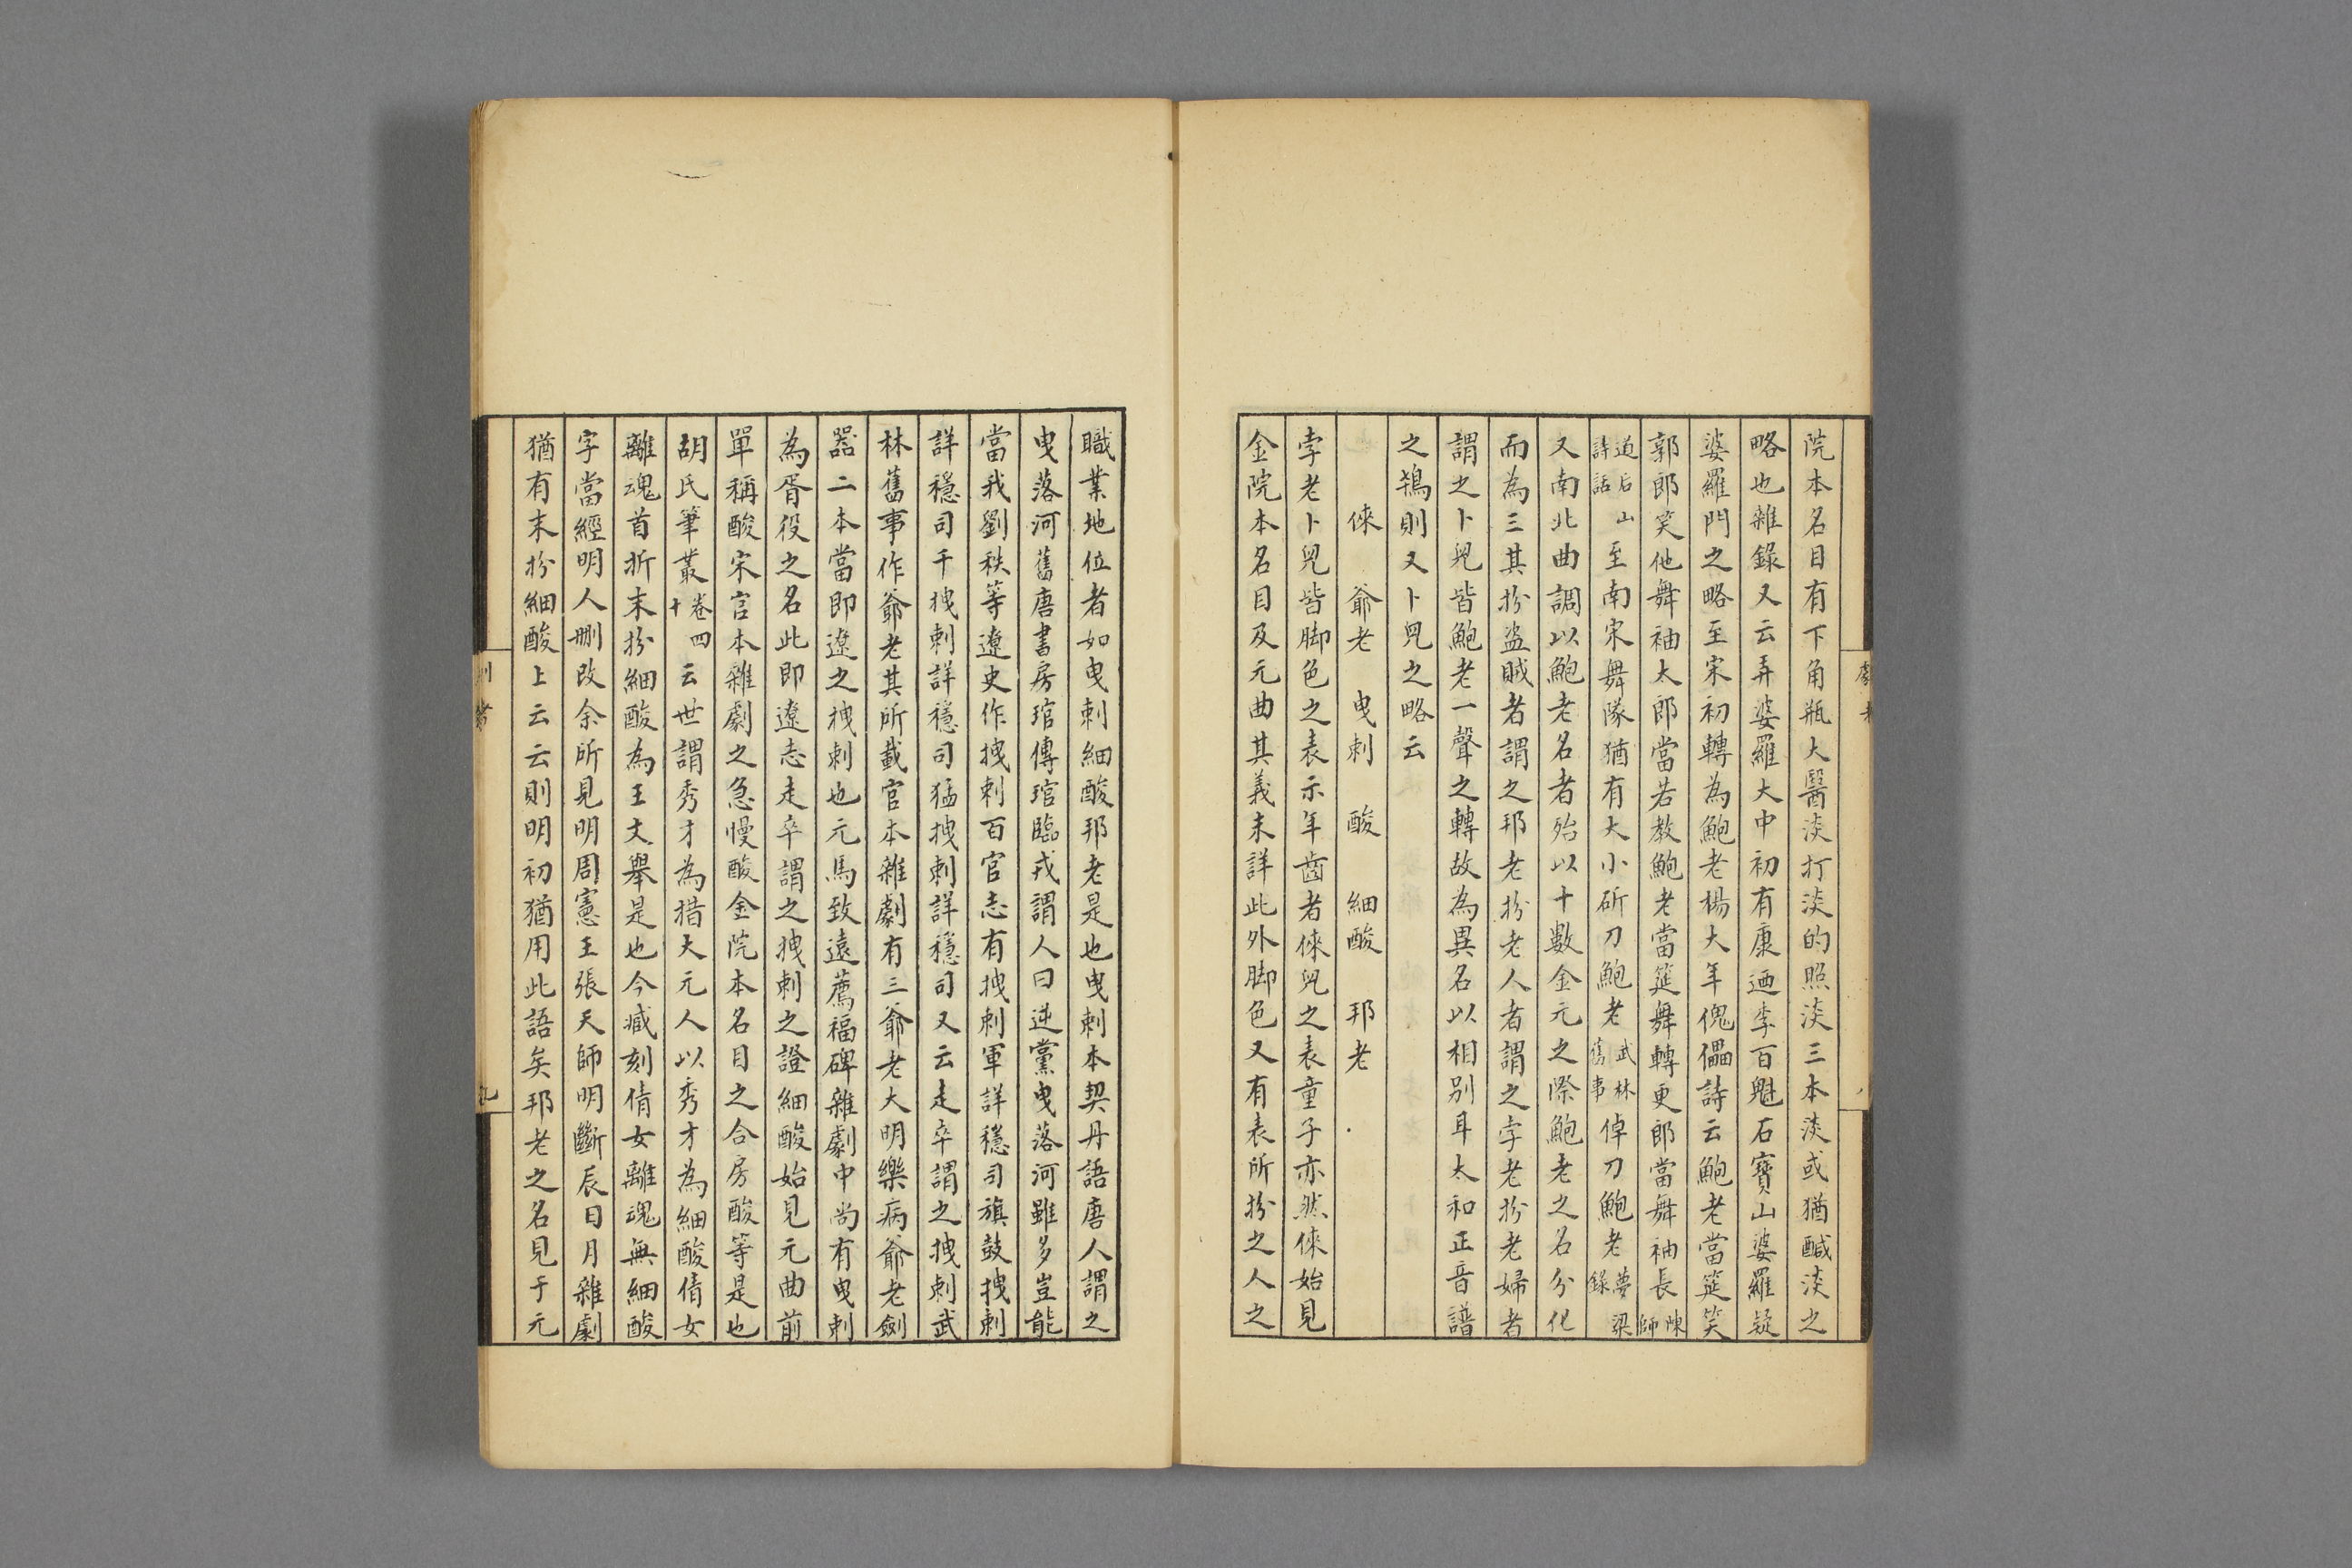 院本名目有下角瓶大醫淡打淡的照淡三本淡或猶醎淡之
略也雜錄又云弄婆羅大中初有康迺李百魁石寶山婆羅疑
婆羅門之略至宋初轉為鮑老楊大年傀儡詩云鮑老當筵笑
郭郎笑他舞袖太郎當若教鮑老當筵舞轉更郎當舞袖長陳師
道后山詩話至南宋舞隊猶有大小斫刀鮑老武林舊事倬刀鮑老夢粱錄
又南北曲調以鮑老名者殆以十數金元之際鮑老之名分化
而為三其扮盜賊者謂之邦老扮老人者謂之孛老扮老婦者
謂之卜兒皆鮑老一聲之轉故為異名以相別耳太和正音譜
之鴇則又卜兒之略云
倈 爺老 曳剌 酸 細酸 邦老
孛老卜兒皆脚色之表示年齒者倈兒之表童子亦然倈始見
金院本名目及元曲其義未詳此外脚色又有表所扮之人之
職業地位者如曳剌細酸邦老是也曳剌本契丹語唐人謂之
曳落河舊唐書房琯傳琯臨戎謂人曰逆黨曳落河雖多豈能
當我劉秩等遼史作拽剌百官志有拽剌軍詳穩司旗鼓拽剌
詳穩司千拽剌詳穩司猛拽剌詳穩司又云走卒謂之拽剌武
林舊事作爺老其所載官本雜劇有三爺老大明樂病爺老劍
器二本當即遼之拽剌也元馬致遠薦福碑雜劇中尚有曳剌
為胥役之名此即遼志走卒謂之拽剌之證細酸始見元曲前
單稱酸宋官本雜劇之急慢酸金院本名目之合房酸等是也
胡氏筆叢卷四十云世謂秀才為措大元人以秀才為細酸倩女
離魂首折末扮細酸為王文舉是也今臧刻倩女離魂無細酸
字當經明人刪改余所見明周憲王張天師明斷辰日月雜劇
猶有末扮細酸上云云則明初猶用此語矣邦老之名見于元